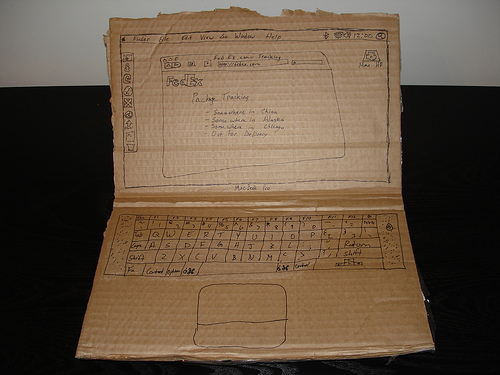 Finder File Edit View Go Window Help 12:00
FedEx.com/Tracking
http://fedex.com
Mac HD
FedEx
Package Tracking
- Somewhere in China
- Somewhere in Alaska
- Somewhere in Chicago
- Out for Delivery
MacBook Pro
Q W E R T Y U I O P
Caps A S D F G H J K L Return
Shift Z X C V B N M < > Shift
Fn Control Option ⌘ ⌘ Control